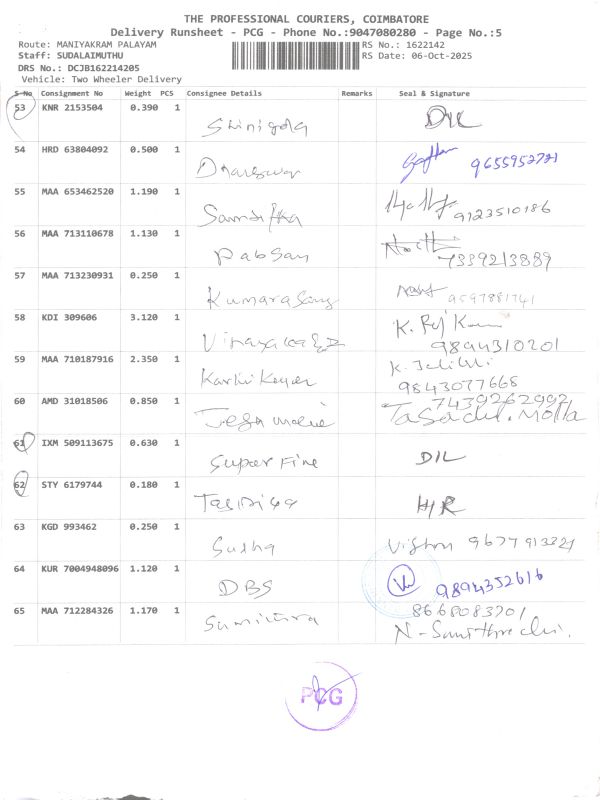 THE PROFESSIONAL COURIERS, COIMBATORE
Delivery Runsheet - PCG - Phone No.:9047080280 - Page No.:5
Route: MANIYAKRAM PALAYAM RS No.: 1622142
Staff: SUDALAIMUTHU RS Date: 06-Oct-2025
DRS No.: DCJB162214205
Vehicle: Two Wheeler Delivery
S-No Consignment No Weight PCS Consignee Details Remarks Seal & Signature
53 KNR 2153504 0.390 1 D\L
54 HRD 63804092 0.500 1 Dhareswar 9655952721
55 MAA 653462520 1.190 1 9123510186
56 MAA 713110678 1.130 1 Pabsan 7339213889
57 MAA 713230931 0.250 1 Kumarasamy 9597881741
58 KDI 309606 3.120 1 K. Raj Kumar
9894310201
59 MAA 710187916 2.350 1 Karthikeyan K.
9843077668
60 AMD 31018506 0.850 1 7439262992
61 IXM 509113675 0.630 1 Super Fine D\L
62 STY 6179744 0.180 1 H/R
63 KGD 993462 0.250 1 Sudha 9677913321
64 KUR 7004948096 1.120 1 DBS 9894352616
65 MAA 712284326 1.170 1 8668083701
PCG